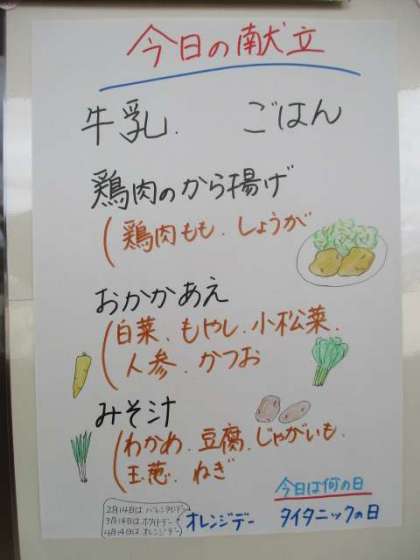 今日の献立
牛乳. ごはん
鶏肉のから揚げ
(鶏肉もも. しょうが
おかかあえ
(白菜. もやし. 小松菜.
人参. かつお
みそ汁
(わかめ. 豆腐. じゃがいも.
玉葱. ねぎ
今日は何の日
2月14日はバレンタインデー
3月14日はホワイトデー
4月14日はオレンジデー
オレンジデー
タイタニックの日